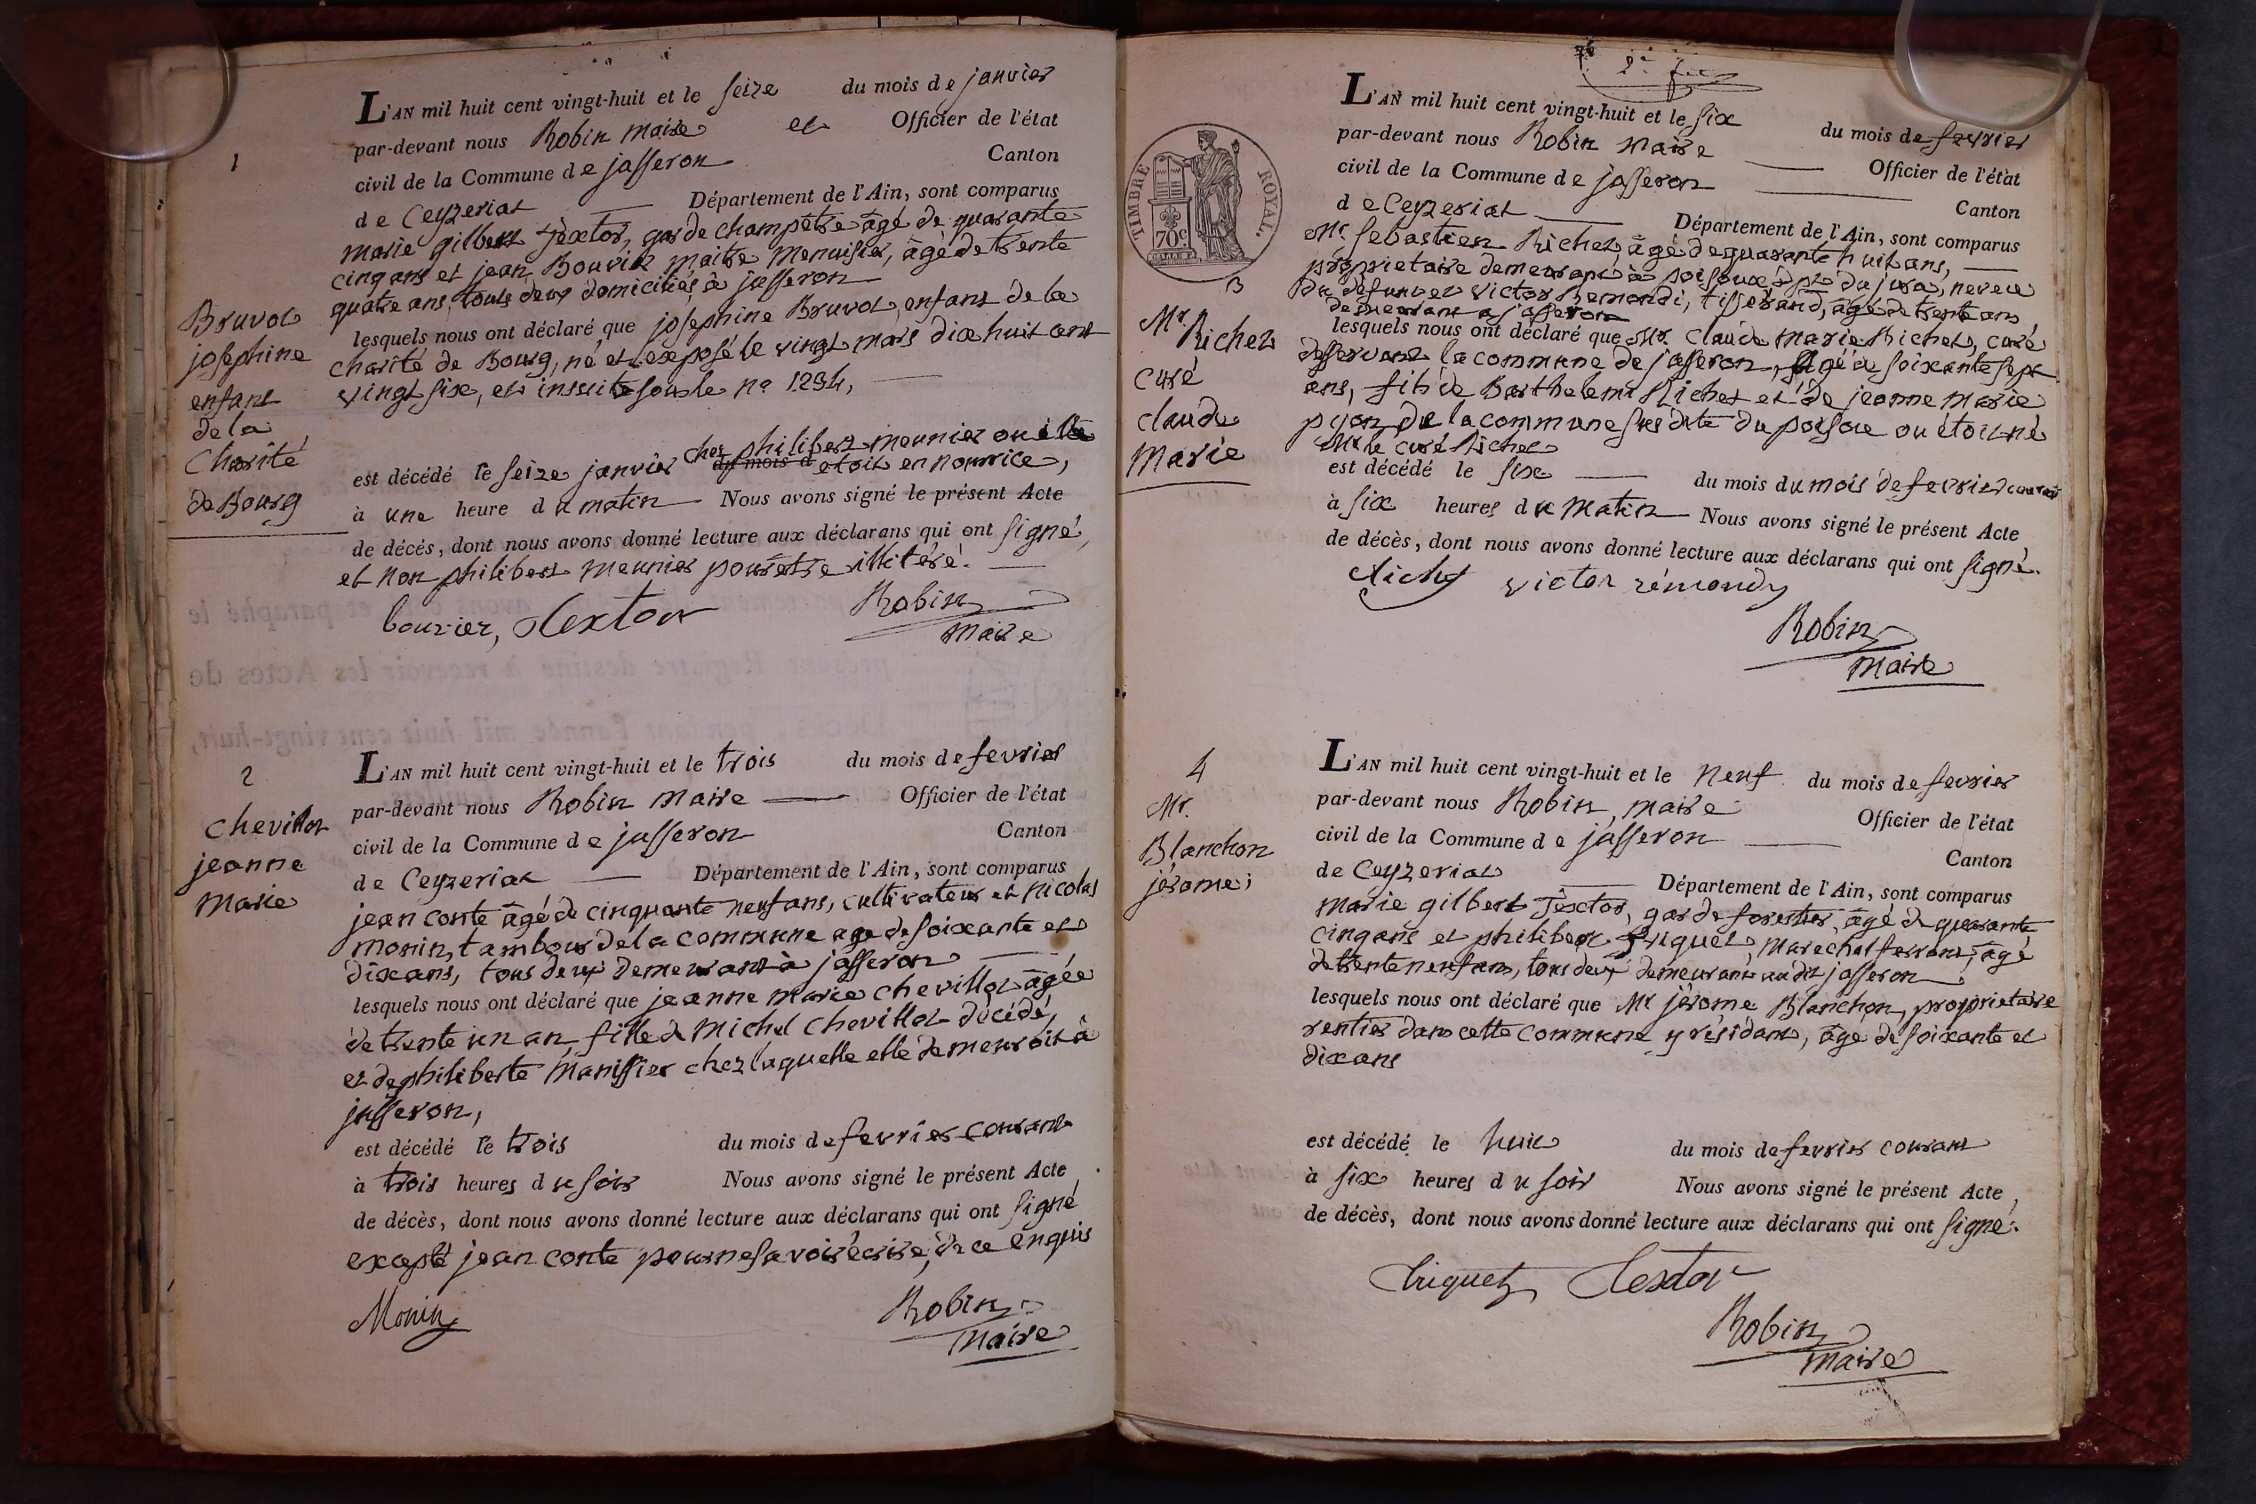 1
Bruvot
josephine
enfant
de la
Charité
de Bourg
L'AN mil huit cent vingt-huit et le seize du mois de janvier
par-devant nous Robin maire et Officier de l'état
civil de la Commune de jasseron Canton
de Ceyzeriat Département de l'Ain, sont comparus
marie gilbert Textor, garde champêtre âgé de quarante
cinq ans et jean Bouvier maitre Menuisier, âgé de trente
quatre ans, touts deux domiciliés à jasseron
lesquels nous ont déclaré que josephine Bruvot, enfant de la
charité de Bourg, né et exposé le vingt mars dix huit cent
vingt six, et inscrite sous le no 1234,
est décédé le seize janvier du mois d chez philibert meunier ou elle étoit en nourrice,
à une heure du matin Nous avons signé le présent Acte
de décès, dont nous avons donné lecture aux déclarans qui ont signé,
et non philibert meunier pour être illitéré.
bouvier, Textor Robin
maire
2
Chevillot
jeanne
Marie
L'AN mil huit cent vingt-huit et le trois du mois de fevrier
par-devant nous Robin maire Officier de l'état
civil de la Commune de jasseron Canton
de Ceyzeriat Département de l'Ain, sont comparus
jean conte âgé de cinquante neuf ans, cultivateur et nicolas
monin, tambour de la commune age de soixante et
dix ans, tous deux demeurant à jasseron
lesquels nous ont déclaré que jeanne marie chevillot âgée
de trente un an, fille de Michel Chevillot décédé,
et de philiberte Manissier chez laquelle elle demeuroit à
jasseron,
est décédé le trois du mois de fevrier courant
à trois heures du soir Nous avons signé le présent Acte
de décès, dont nous avons donné lecture aux déclarans qui ont signé
excepté jean conte pour ne savoir écrire, de ce enquis
Monin Robin
maire
TIMBRE ROYAL.
70c
3
Mr.
Richet
curé
claude
Marie
L'AN mil huit cent vingt-huit et le six du mois de fevrier
par-devant nous Robin maire Officier de l'état
civil de la Commune de jasseron Canton
de Ceyzeriat Département de l'Ain, sont comparus
Mr. Sebastien Richet, âgé de quarante huit ans,
proprietaire demeurant à poisoux dpt. du jura, neveu
du defunt et victor Remondi, tisserand, âgé de trente ans
demeurant a jasseron
lesquels nous ont déclaré que Mr. Claude marie Richet, curé
desservant la commune de jasseron, âgé de soixante sept
ans, fils de Barthelemi Richet et de jeanne marie
pyon de la commune susdite du poisoux ou étoit né
Mr. le curé Richet
est décédé le six du mois du mois de fevrier courant
à six heures du matin Nous avons signé le présent Acte
de décès, dont nous avons donné lecture aux déclarans qui ont signé.
Richet victor rémondy
Robin
maire
4
Mr.
Blanchon
jérome;
L'AN mil huit cent vingt-huit et le neuf du mois de fevrier
par-devant nous Robin, maire Officier de l'état
civil de la Commune de jasseron Canton
de Ceyzeriat Département de l'Ain, sont comparus
marie gilbert Textor, garde forestier, âgé de quarante
cinq ans et philibert Triquet, marechal ferrant, âgé
de trente neuf ans, tous deux demeurant audit jasseron
lesquels nous ont déclaré que Mr jérome Blanchon, proprietaire
rentier dans cette commune y résidant, âgé de soixante et
dix ans
est décédé le huit du mois de fevrier courant
à six heures du soir Nous avons signé le présent Acte,
de décès, dont nous avons donné lecture aux déclarans qui ont signé.
Triquet Textor
Robin
maire